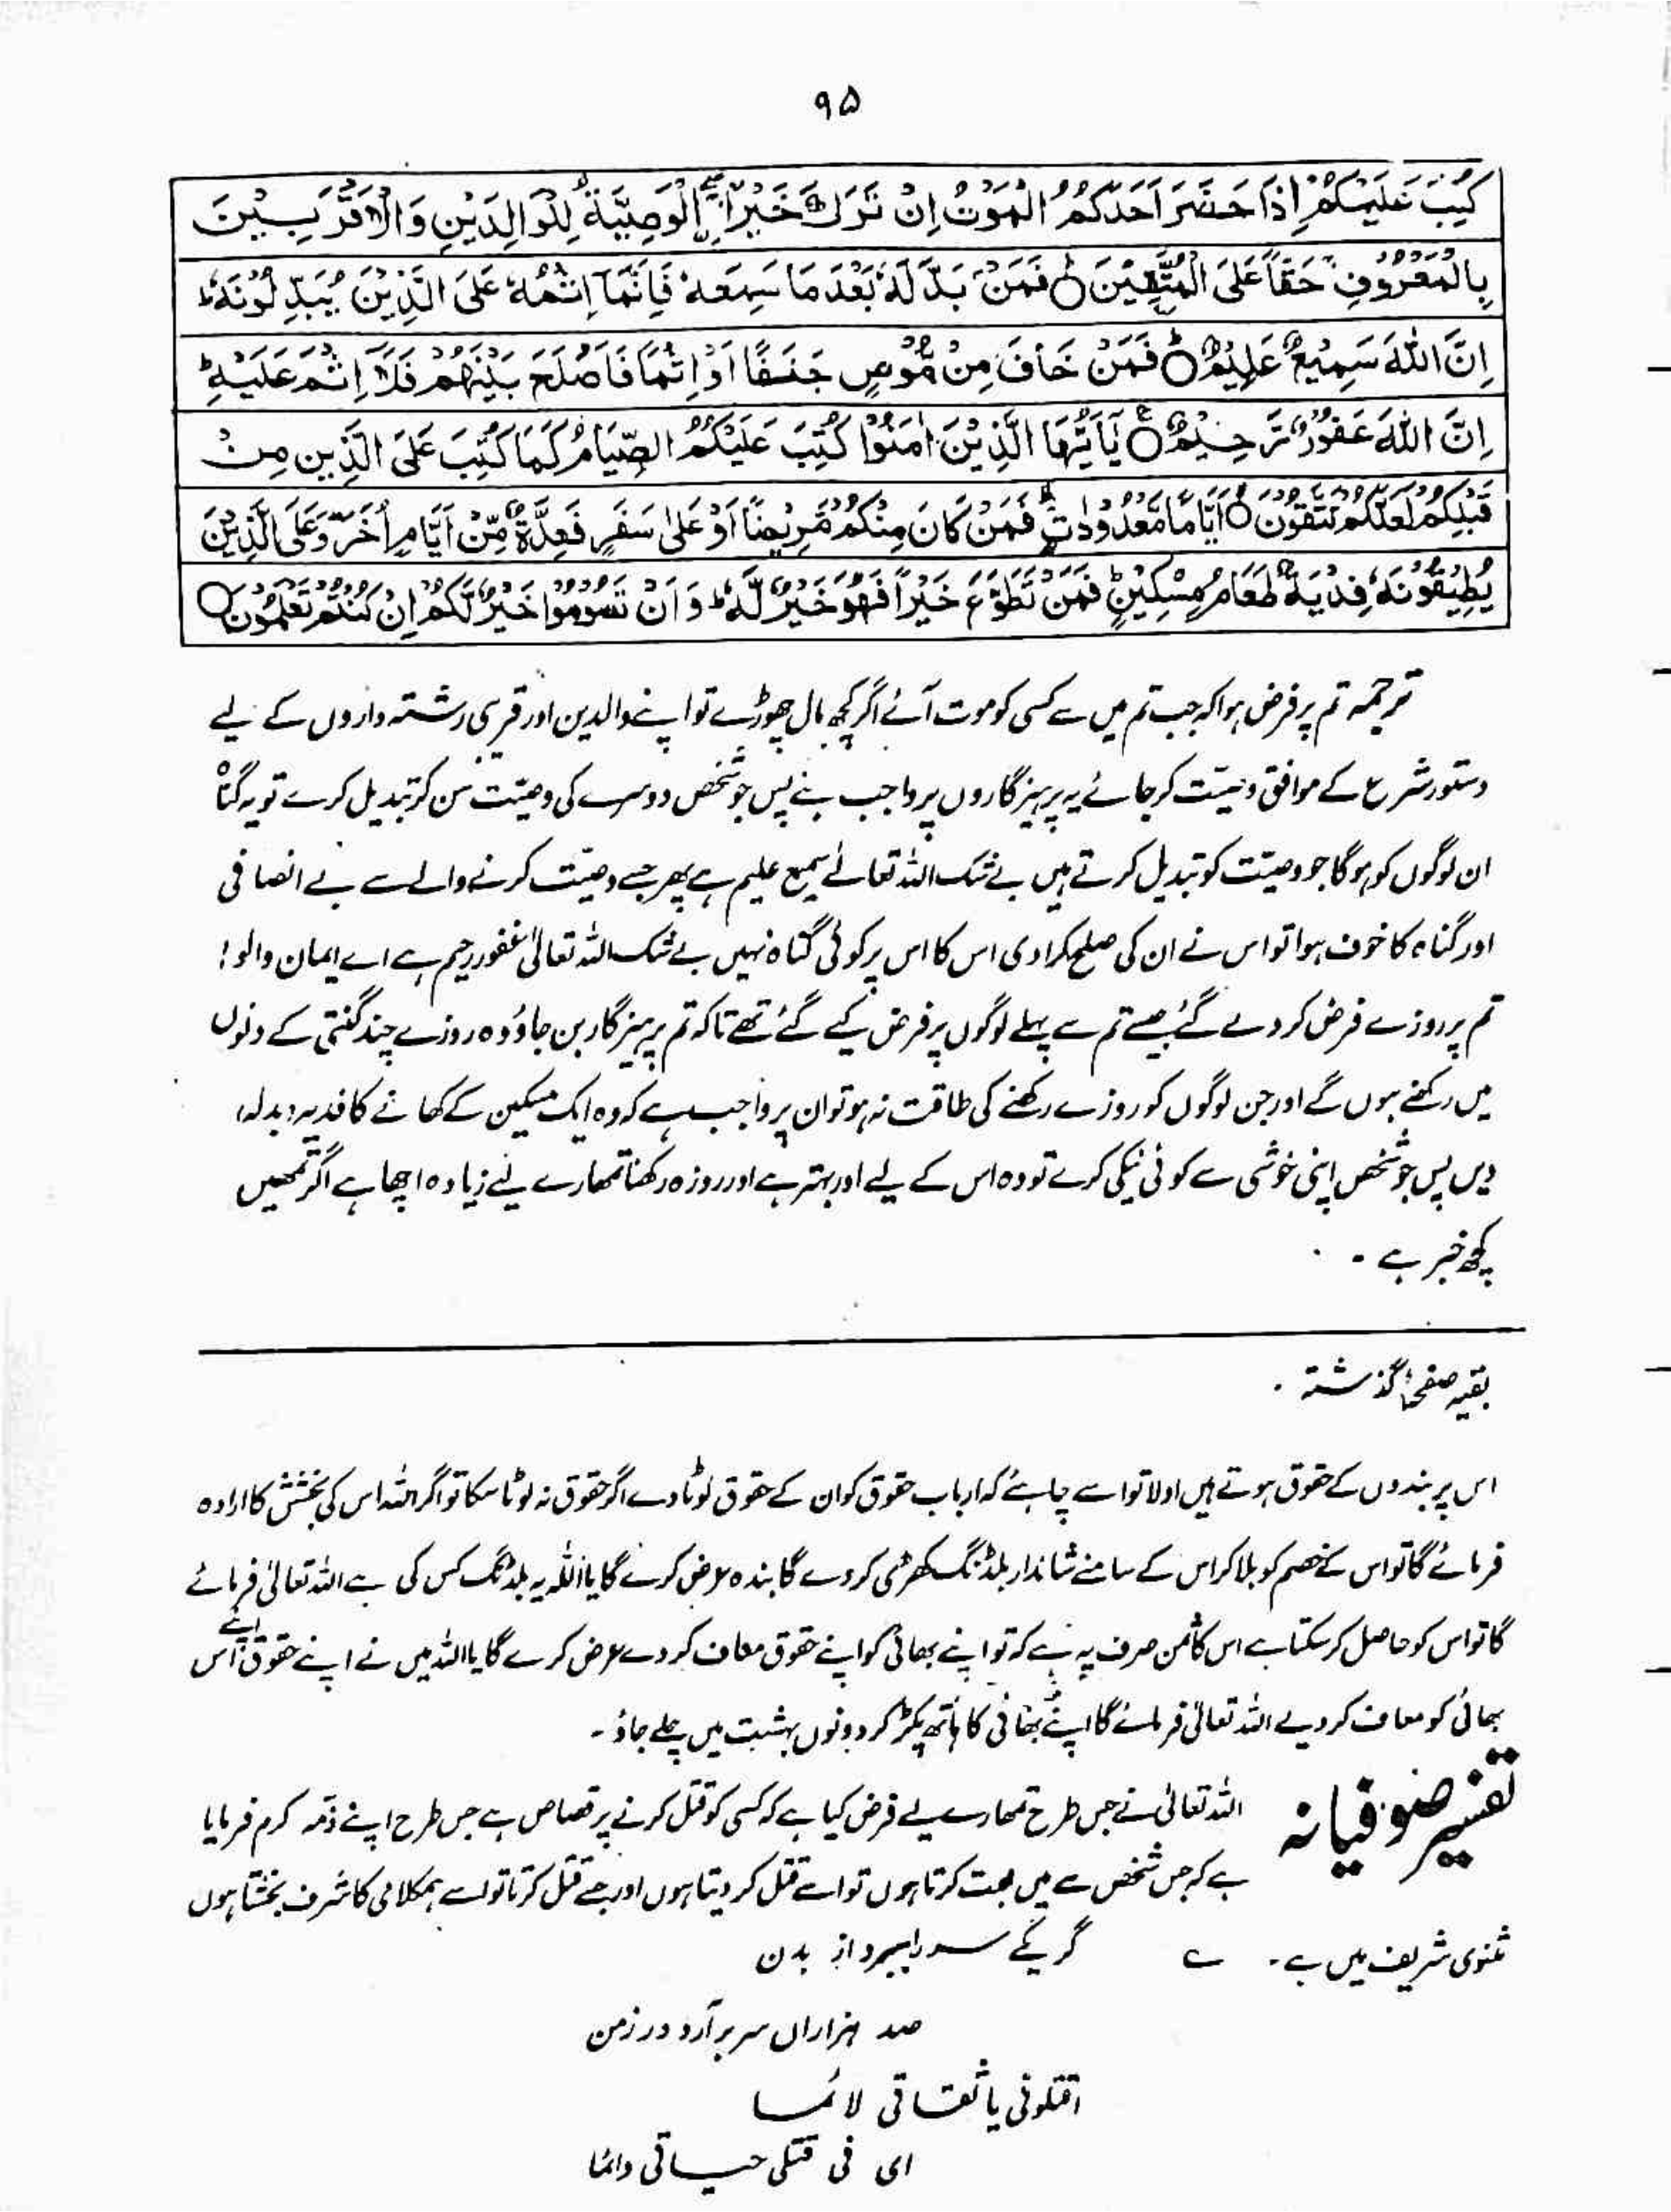 ۹۵
كُتِبَ عَلَيْكُمْ اِذَا حَضَرَ اَحَدَكُمُ الْمَوْتُ اِنْ تَرَكَ خَيْرًا ۖۚ الْوَصِيَّةُ لِلْوَالِدَيْنِ وَالْاَقْرَبِيْنَ
بِالْمَعْرُوْفِ حَقًّا عَلَى الْمُتَّقِيْنَ ○ فَمَنْ بَدَّلَهٗ بَعْدَ مَا سَمِعَهٗ فَاِنَّمَا اِثْمُهٗ عَلَى الَّذِيْنَ يُبَدِّلُوْنَهٗ ط
اِنَّ اللّٰهَ سَمِيْعٌ عَلِيْمٌ ○ فَمَنْ خَافَ مِنْ مُّوْصٍ جَنَفًا اَوْ اِثْمًا فَاَصْلَحَ بَيْنَهُمْ فَلَا اِثْمَ عَلَيْهِ ط
اِنَّ اللّٰهَ غَفُوْرٌ رَّحِيْمٌ ○ يٰاَيُّهَا الَّذِيْنَ اٰمَنُوْا كُتِبَ عَلَيْكُمُ الصِّيَامُ كَمَا كُتِبَ عَلَى الَّذِيْنَ مِنْ
قَبْلِكُمْ لَعَلَّكُمْ تَتَّقُوْنَ ○ اَيَّامًا مَّعْدُوْدَاتٍ ط فَمَنْ كَانَ مِنْكُمْ مَّرِيْضًا اَوْ عَلٰى سَفَرٍ فَعِدَّةٌ مِّنْ اَيَّامٍ اُخَرَ وَعَلَى الَّذِيْنَ
يُطِيْقُوْنَهٗ فِدْيَةٌ طَعَامُ مِسْكِيْنٍ ط فَمَنْ تَطَوَّعَ خَيْرًا فَهُوَ خَيْرٌ لَّهٗ ط وَاَنْ تَصُوْمُوْا خَيْرٌ لَّكُمْ اِنْ كُنْتُمْ تَعْلَمُوْنَ ○
ترجمہ تم پر فرض ہوا کہ جب تم میں سے کسی کو موت آئے اگر کچھ مال چھوڑے تو اپنے والدین اور قریبی رشتہ داروں کے لیے
دستور شرع کے موافق وصیّت کر جائے یہ پرہیزگاروں پر واجب ہے پس جو شخص دوسرے کی وصیّت سن کر تبدیل کرے تو یہ گناہ
ان لوگوں کو ہوگا جو وصیّت کو تبدیل کرتے ہیں بے شک اللہ تعالےٰ سمیع علیم ہے پھر جسے وصیّت کرنے والے سے بے انصافی
اور گناہ کا خوف ہوا تو اس نے ان کی صلح کرا دی اس کا اس پر کوئی گناہ نہیں بے شک اللہ تعالیٰ غفور رحیم ہے اے ایمان والو!
تم پر روزے فرض کر دے گئے جیسے تم سے پہلے لوگوں پر فرض کیے گئے تھے تاکہ تم پرہیزگار بن جاؤ وہ روزے چند گنتی کے دنوں
میں رکھنے ہوں گے اور جن لوگوں کو روزے رکھنے کی طاقت نہ ہو تو ان پر واجب ہے کہ وہ ایک مسکین کے کھانے کا فدیہ (بدلہ)
دیں پس جو شخص اپنی خوشی سے کوئی نیکی کرے تو وہ اس کے لیے اور بہتر ہے اور روزہ رکھنا تمھارے لیے زیادہ اچھا ہے اگر تمھیں
کچھ خبر ہے ۔
بقیہ صفحۂ گذشتہ ۔
اس پر بندوں کے حقوق ہوتے ہیں اولا تو اسے چاہئے کہ ارباب حقوق کو ان کے حقوق لوٹا دے اگر حقوق نہ لوٹا سکا تو اگر اللہ اس کی بخشش کا ارادہ
فرمائے گا تو اس کے خصم کو بلا کر اس کے سامنے شاندار بلڈنگ کھڑی کر دے گا بندہ عرض کرے گا یا اللہ یہ بلڈنگ کس کی ہے اللہ تعالیٰ فرمائے
گا تو اس کو حاصل کر سکتا ہے اس کا ثمن صرف یہ ہے کہ تو اپنے بھائی کو اپنے حقوق معاف کر دے عرض کرے گا یا اللہ میں نے اپنے حقوق اپنے اس
بھائی کو معاف کر دیے اللہ تعالیٰ فرمائے گا اپنے بھائی کا ہاتھ پکڑ کر دونوں بہشت میں چلے جاؤ ۔
تفسیر صوفیانہ اللہ تعالیٰ نے جس طرح تمھارے لیے فرض کیا ہے کہ کسی کو قتل کرنے پر قصاص ہے جس طرح اپنے ذمّہ کرم فرمایا
ہے کہ جس شخص سے میں محبت کرتا ہوں تو اسے قتل کر دیتا ہوں اور جسے قتل کرتا تو اسے ہمکلامی کا شرف بخشتا ہوں
مثنوی شریف میں ہے ۔ ے گر یکے سر را ببرد از بدن
صد ہزاراں سر بر آرد در زمن
اقتلونی یا ثقاتی لائما
ای فی قتلی حیاتی دائما